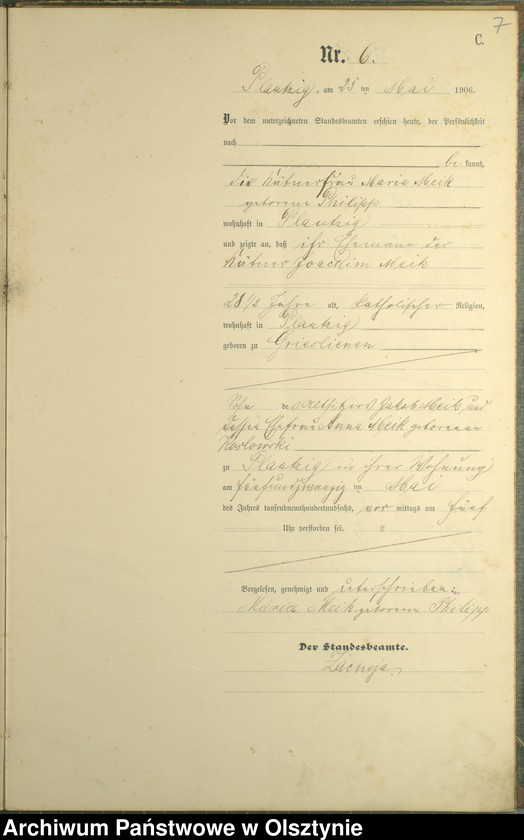 7
C.
Nr. 6.
Plautzig, am 25 ten Mai 1906.
Vor dem unterzeichneten Standesbeamten erschien heute, der Persönlichkeit
nach
be kannt,
die Kätnerfrau Maria Meik
geborene Philipp
wohnhaft in Plautzig
und zeigte an, daß ihr Ehemann der
Kätner Joachim Meik
28 1/2 Jahre alt, katholischer Religion,
wohnhaft in Plautzig
geboren zu Grieslienen
Sohn des Altsitzers Jakob Meik und
dessen Ehefrau Anna Meik geborenen
Koslowski
zu Plautzig in ihrer Wohnung
am fünfundzwanzig ten Mai
des Jahres tausendneunhundertsechs, vor mittags um fünf
Uhr verstorben sei.
Vorgelesen, genehmigt und unterschrieben:
Maria Meik geborene Philipp
Der Standesbeamte.
Archiwum Państwowe w Olsztynie